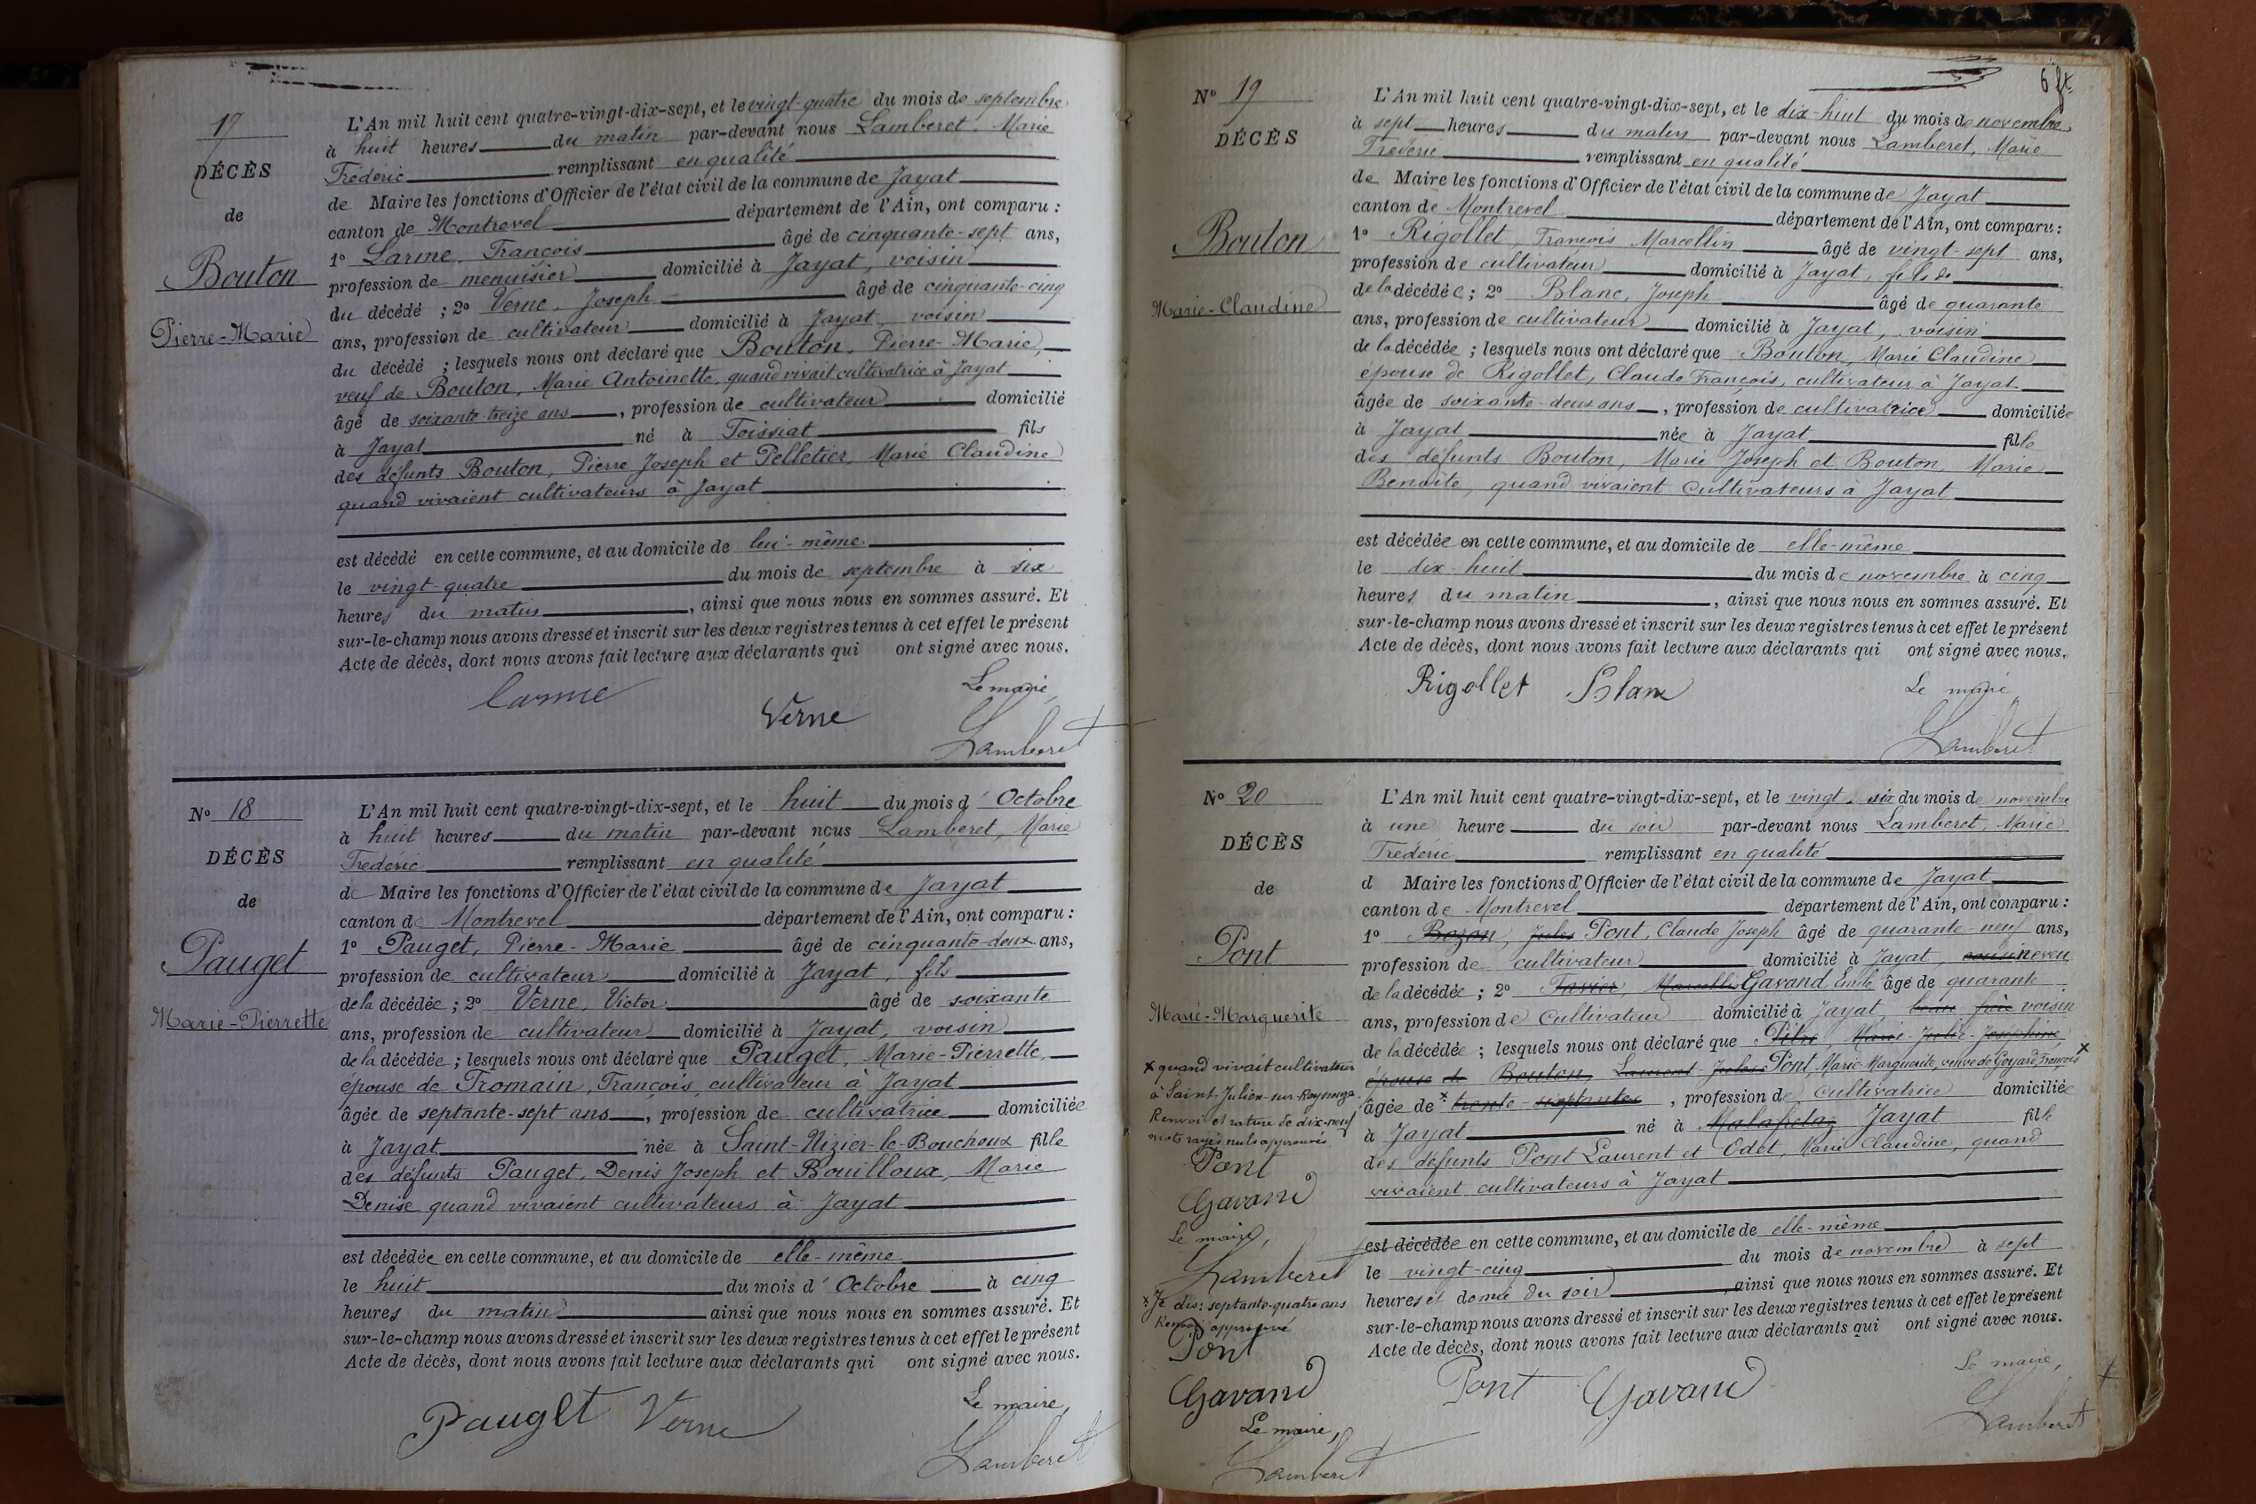 17
DÉCÈS
de
Bouton
Pierre-Marie
L'An mil huit cent quatre-vingt-dix-sept, et le vingt-quatre du mois de septembre
à huit heures du matin par-devant nous Lamberet, Marie
Frédéric remplissant en qualité
de Maire les fonctions d'Officier de l'état civil de la commune de Jayat
canton de Montrevel département de l'Ain, ont comparu :
1º Larme, François âgé de cinquante-sept ans,
profession de menuisier domicilié à Jayat, voisin
du décédé ; 2º Verne, Joseph âgé de cinquante-cinq
ans, profession de cultivateur domicilié à Jayat, voisin
du décédé ; lesquels nous ont déclaré que Bouton, Pierre-Marie,
veuf de Bouton, Marie Antoinette, quand vivait cultivatrice à Jayat
âgé de soixante-treize ans, profession de cultivateur domicilié
à Jayat né à Foissiat fils
des défunts Bouton, Pierre Joseph et Pelletier, Marie Claudine
quand vivaient cultivateurs à Jayat
est décédé en cette commune, et au domicile de lui-même
le vingt-quatre du mois de septembre à six
heures du matin, ainsi que nous nous en sommes assuré. Et
sur-le-champ nous avons dressé et inscrit sur les deux registres tenus à cet effet le présent
Acte de décès, dont nous avons fait lecture aux déclarants qui ont signé avec nous.
Larme Verne Le maire,
Lamberet
Nº 18
DÉCÈS
de
Pauget
Marie-Pierrette
L'An mil huit cent quatre-vingt-dix-sept, et le huit du mois d'Octobre
à huit heures du matin par-devant nous Lamberet, Marie
Frédéric remplissant en qualité
de Maire les fonctions d'Officier de l'état civil de la commune de Jayat
canton de Montrevel département de l'Ain, ont comparu :
1º Pauget, Pierre-Marie âgé de cinquante-deux ans,
profession de cultivateur domicilié à Jayat, fils
de la décédée ; 2º Verne, Victor âgé de soixante
ans, profession de cultivateur domicilié à Jayat, voisin
de la décédée ; lesquels nous ont déclaré que Pauget, Marie-Pierrette,
épouse de Fromain, François, cultivateur à Jayat
âgée de septante-sept ans, profession de cultivatrice domiciliée
à Jayat née à Saint-Nizier-le-Bouchoux fille
des défunts Pauget, Denis Joseph et Bouilloux, Marie
Denise quand vivaient cultivateurs à Jayat
est décédée en cette commune, et au domicile de elle-même
le huit du mois d'Octobre à cinq
heures du matin ainsi que nous nous en sommes assuré. Et
sur-le-champ nous avons dressé et inscrit sur les deux registres tenus à cet effet le présent
Acte de décès, dont nous avons fait lecture aux déclarants qui ont signé avec nous.
Pauget Verne Le maire,
Lamberet
Nº 19
DÉCÈS
Bouton
Marie-Claudine
L'An mil huit cent quatre-vingt-dix-sept, et le dix-huit du mois de novembre,
à sept heures du matin par-devant nous Lamberet, Marie
Frédéric remplissant en qualité
de Maire les fonctions d'Officier de l'état civil de la commune de Jayat
canton de Montrevel département de l'Ain, ont comparu :
1º Rigollet, François Marcellin âgé de vingt-sept ans,
profession de cultivateur domicilié à Jayat, fils de
de la décédée ; 2º Blanc, Joseph âgé de quarante
ans, profession de cultivateur domicilié à Jayat, voisin
de la décédée ; lesquels nous ont déclaré que Bouton, Marie Claudine
épouse de Rigollet, Claude François, cultivateur à Jayat
âgée de soixante-deux ans, profession de cultivatrice domiciliée
à Jayat née à Jayat fille
des défunts Bouton, Marie Joseph et Bouton, Marie
Benoîte, quand vivaient cultivateurs à Jayat
est décédée en cette commune, et au domicile de elle-même
le dix-huit du mois de novembre à cinq
heures du matin, ainsi que nous nous en sommes assuré. Et
sur-le-champ nous avons dressé et inscrit sur les deux registres tenus à cet effet le présent
Acte de décès, dont nous avons fait lecture aux déclarants qui ont signé avec nous.
Rigollet Blanc Le maire,
Lamberet
Nº 20
DÉCÈS
de
Pont
Marie-Marguerite
x quand vivait cultivateur
à Saint-Julien-sur-Reyssouze
Renvoi et rature de dix-neuf
mots rayés nuls approuvés
Pont
Gavand
Le maire,
Lamberet
x Je dis : septante-quatre ans
Renvoi approuvé
Pont
Gavand
Le maire,
Lamberet
L'An mil huit cent quatre-vingt-dix-sept, et le vingt-six du mois de novembre
à une heure du soir par-devant nous Lamberet, Marie
Frédéric remplissant en qualité
d Maire les fonctions d'Officier de l'état civil de la commune de Jayat
canton de Montrevel département de l'Ain, ont comparu :
1º Bozon, Jules Pont, Claude Joseph âgé de quarante-neuf ans,
profession de cultivateur domicilié à Jayat, neveu
de la décédée ; 2º Gavand Emile âgé de quarante
ans, profession de Cultivateur domicilié à Jayat, beau-frère voisin
de la décédée ; lesquels nous ont déclaré que Marie Joséphine
épouse de Bouton, Laurent Jules Pont Marie Marguerite, veuve de Goyard, François x
âgée de x trente-sept ans, profession de cultivatrice domiciliée
à Jayat né à Malafretaz Jayat fille
des défunts Pont Laurent et Odet, Marie Claudine, quand
vivaient cultivateurs à Jayat
est décédée en cette commune, et au domicile de elle-même
le vingt-cinq du mois de novembre à sept
heures et demie du soir, ainsi que nous nous en sommes assuré. Et
sur-le-champ nous avons dressé et inscrit sur les deux registres tenus à cet effet le présent
Acte de décès, dont nous avons fait lecture aux déclarants qui ont signé avec nous.
Pont Gavand Le maire,
Lamberet